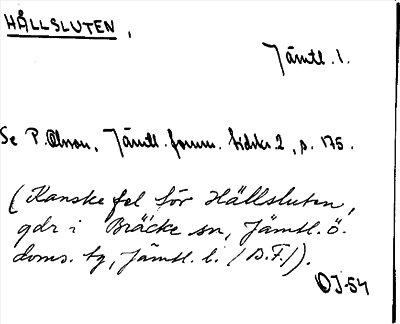 HÅLLSLUTEN,
Jämtl. l.
Se P. Olsson, Jämtl. fornm. tidskr. 2, s. 175.
(Kanske fel för Hällsluten,
gdr i Bräcke sn, Jämtl. ö.
doms. tg, Jämtl. l. (D.F.)).
OJ-54